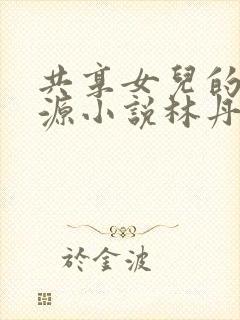 共享女兒的
源小說林丹
於金波